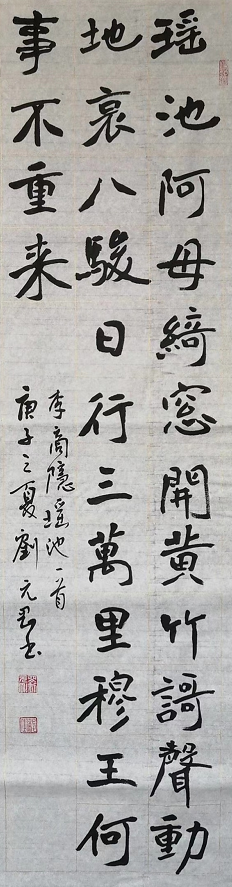 瑶池阿母綺窓開黄竹謌聲動
地哀八駿日行三萬里穆王何
事不重来
李商隱瑶池一首
庚子之夏劉元書